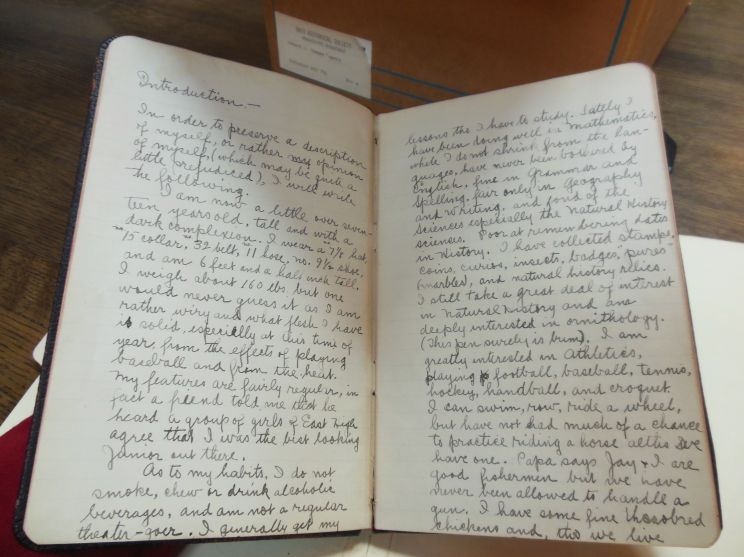 Introduction.—
In order to preserve a description
of myself, or rather my opinion
of myself, (which may be quite a
little prejudiced), I will write
the following.
I am now a little over seven-
teen years old, tall and with a
dark complexion. I wear a 7⅛ hat,
15 collar, 32 belt, 11 hose, no. 9½ shoe,
and am 6 feet and a half inch tall.
I weigh about 160 lbs. but one
would never guess it as I am
rather wiry and what flesh I have
is solid, especially at this time of
year, from the effects of playing
baseball and from the heat.
My features are fairly regular, in
fact a friend told me that he
heard a group of girls of East High
agree that I was the best looking
Junior out there.
As to my habits, I do not
smoke, chew or drink alcoholic
beverages, and am not a regular
theater-goer. I generally get my
lessons tho I have to study. Lately I
have been doing well in Mathematics,
while I do not shrink from the lan-
guages, have never been bothered by
English, fine in Grammar and
Spelling, fair only in Geography
and Writing, and fond of the
Sciences especially the Natural History
Sciences. Poor at remembering dates
in History. I have collected stamps,
coins, curios, insects, badges,
marbles, and natural history relics.
I still take a great deal of interest
in Natural History and am
deeply interested in ornithology.
(This pen surely is bum). I am
greatly interested in Athletics,
playing football, baseball, tennis,
hockey, handball, and croquet.
I can swim, row, ride a wheel,
but have not had much of a chance
to practice riding a horse altho I've
have one. Papa says Jay & I are
good fishermen but we have
never been allowed to handle a
gun. I have some fine
chickens and, tho we live